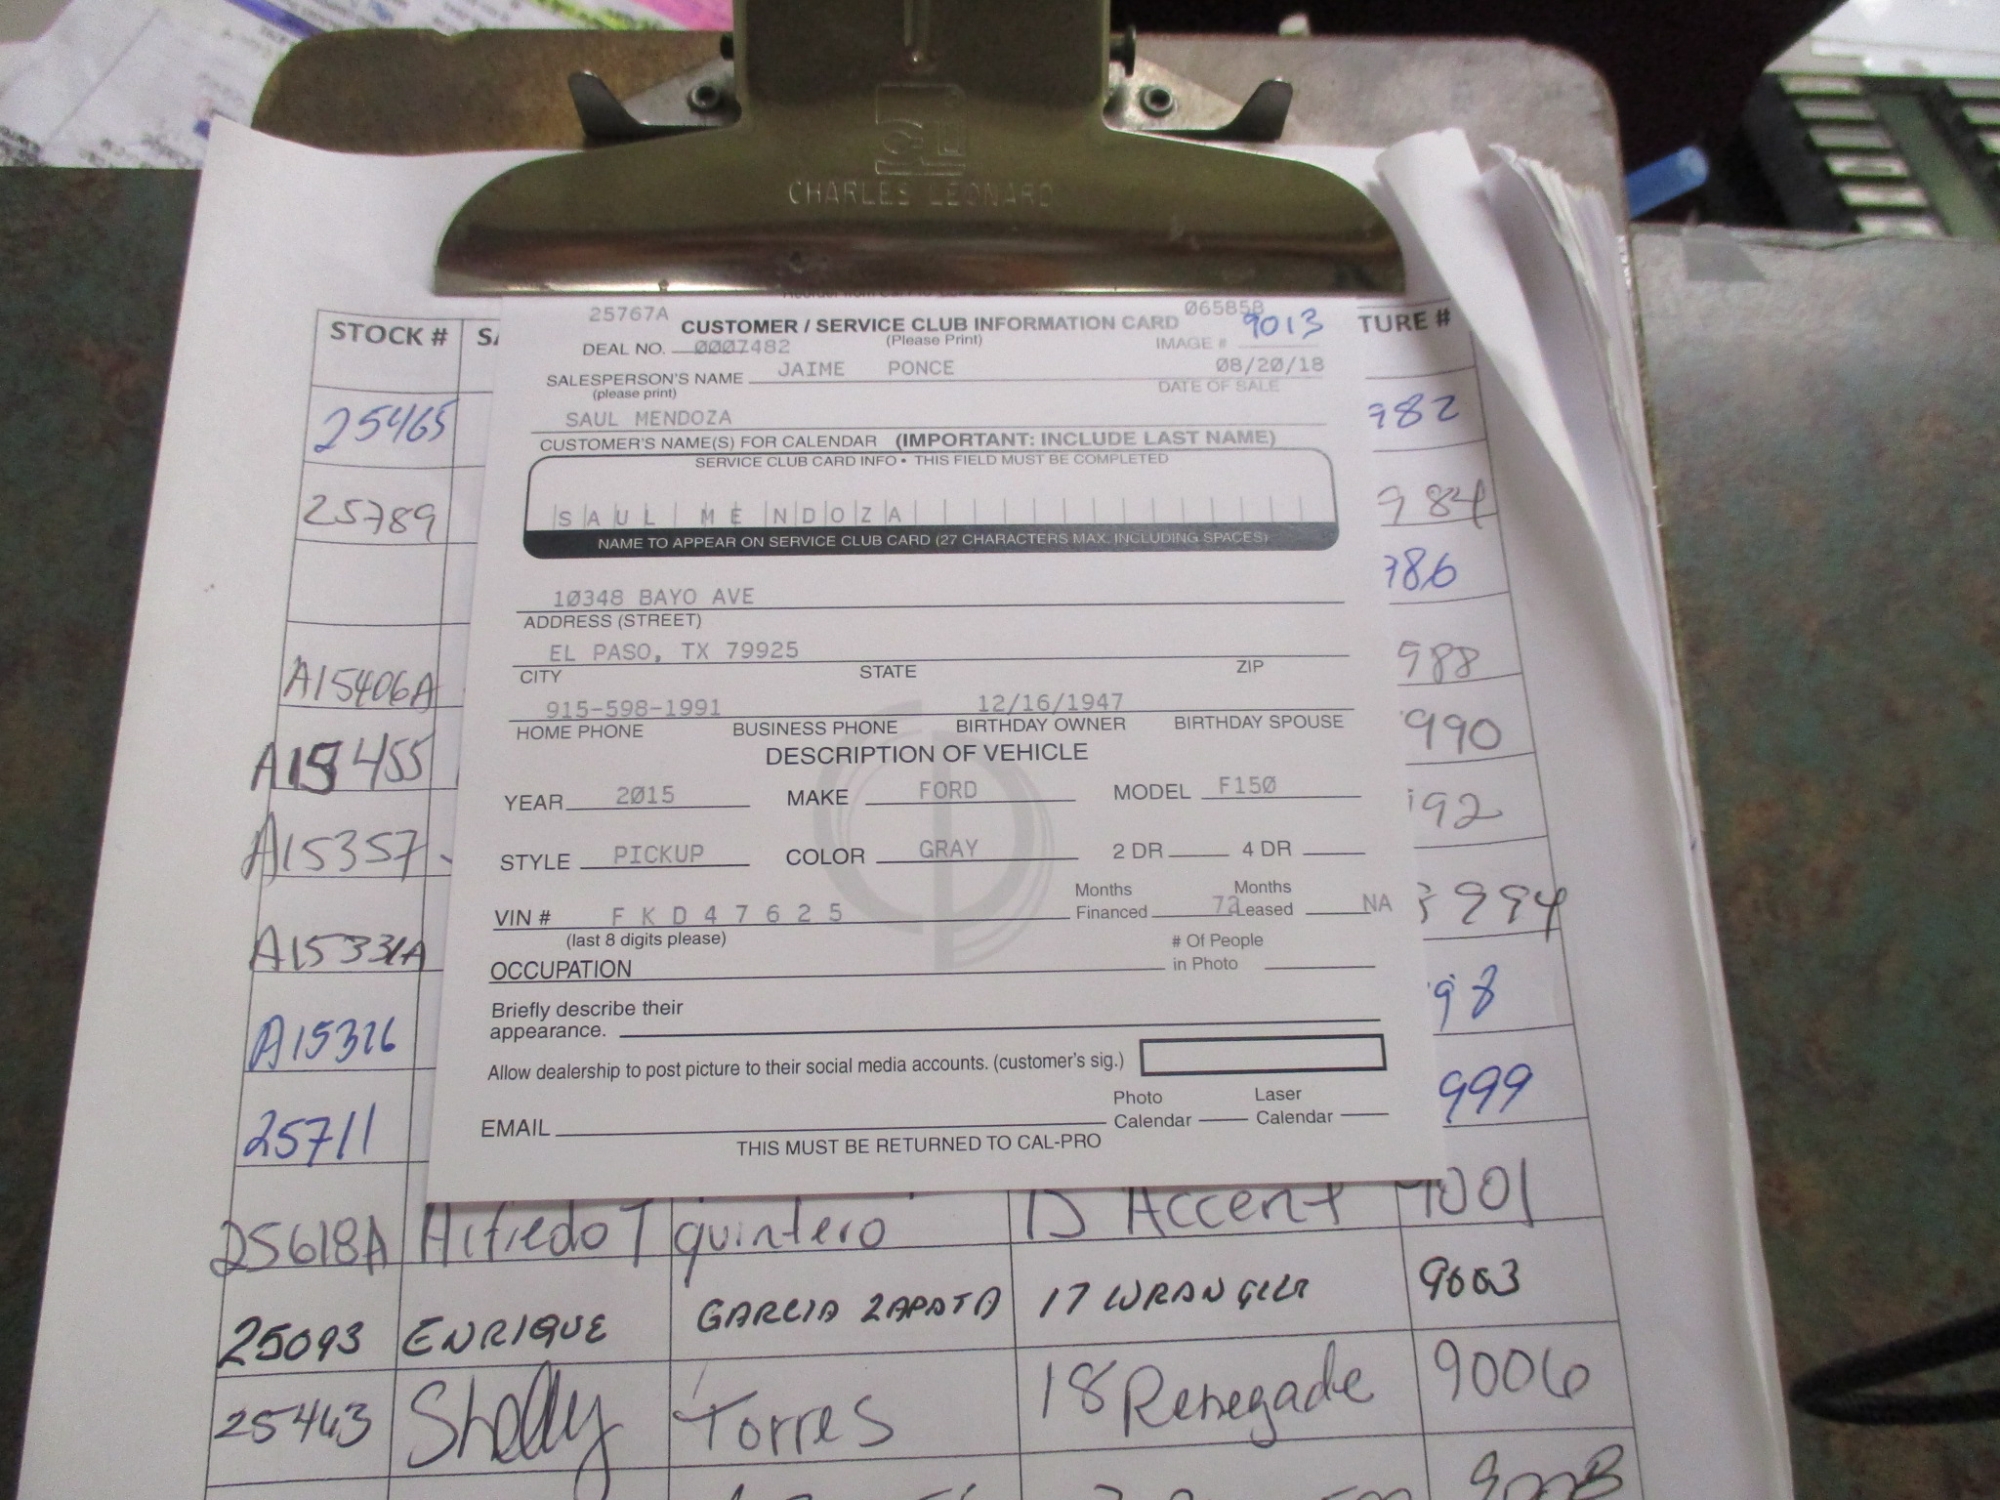 CHARLES LEONARD
25767A
06585B
CUSTOMER / SERVICE CLUB INFORMATION CARD
(Please Print)
DEAL NO. 0007482
IMAGE # 9013
SALESPERSON'S NAME JAIME PONCE
(please print)
08/20/18
DATE OF SALE
SAUL MENDOZA
CUSTOMER'S NAME(S) FOR CALENDAR (IMPORTANT: INCLUDE LAST NAME)
SERVICE CLUB CARD INFO • THIS FIELD MUST BE COMPLETED
SAUL MENDOZA
NAME TO APPEAR ON SERVICE CLUB CARD (27 CHARACTERS MAX. INCLUDING SPACES)
10348 BAYO AVE
ADDRESS (STREET)
EL PASO, TX 79925
CITY STATE ZIP
915-598-1991 12/16/1947
HOME PHONE BUSINESS PHONE BIRTHDAY OWNER BIRTHDAY SPOUSE
DESCRIPTION OF VEHICLE
YEAR 2015 MAKE FORD MODEL F150
STYLE PICKUP COLOR GRAY 2 DR 4 DR
VIN # F K D 4 7 6 2 5 Months Financed 72 Months Leased NA
(last 8 digits please)
OCCUPATION # Of People in Photo
Briefly describe their
appearance.
Allow dealership to post picture to their social media accounts. (customer's sig.)
EMAIL Photo Calendar Laser Calendar
THIS MUST BE RETURNED TO CAL-PRO
STOCK # SA TURE #
25465 982
25789 984
986
A15406A 988
A15455 990
A15357 992
A15331A 994
A15316 98
25711 999
25618A Alfredo T quintero 15 Accent 9001
25093 ENRIQUE GARCIA ZAPATA 17 WRANGLER 9003
25443 Shelly Torres 18 Renegade 9006